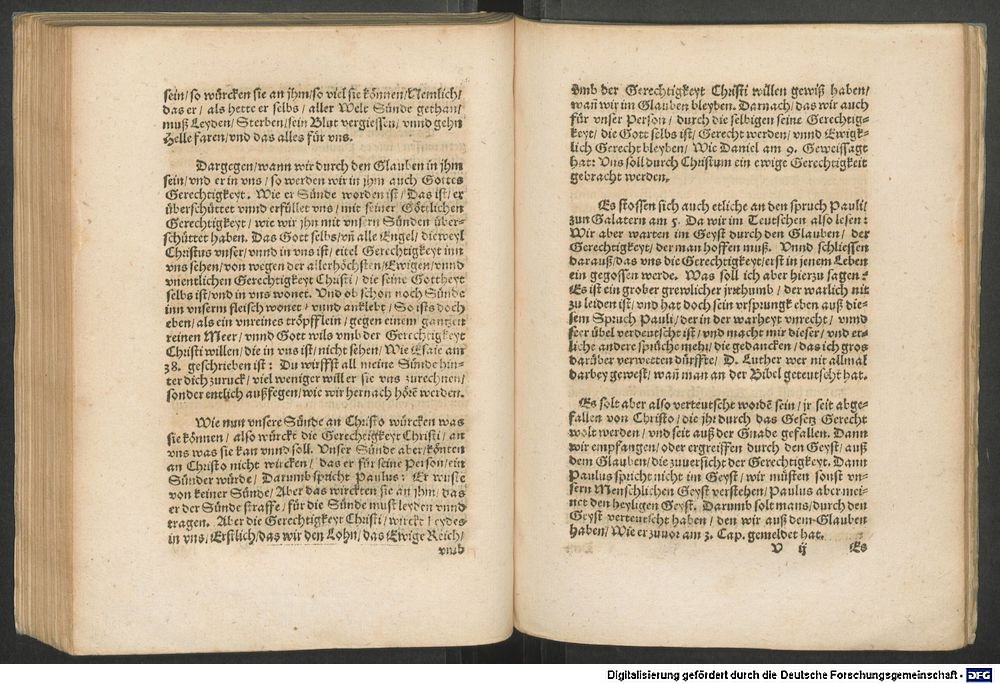 sein/so würcken sie an jhm/so viel sie können/Nemlich/
das er/als hette er selbs/aller Welt Sünde gethan/
muß Leyden/Sterben/sein Blut vergiessen/vnnd gehn
Helle faren/vnd das alles für vns.
Dargegen/wann wir durch den Glauben in jhm
sein/vnd er in vns/so werden wir in jhm auch Gottes
Gerechtigkeyt. Wie er Sünde worden ist/Das ist/er
überschüttet vnnd erfüllet vns/mit seiner Göttlichen
Gerechtigkeyt/wie wir jhn mit vnsern Sünden über-
schüttet haben. Das Gott selbs/vñ alle Engel/dieweyl
Christus vnser/vnnd in vns ist/eitel Gerechtigkeyt inn
vns sehen/von wegen der allerhöchsten/Ewigen/vnnd
vnentlichen Gerechtigkeyt Christi/die seine Gottheyt
selbs ist/vnd in vns wonet. Vnd ob schon noch Sünde
inn vnserm fleisch wonet/vnnd anklebt/So ists doch
eben/als ein vnreines tröpfflein/gegen einem gantzen
reinen Meer/vnnd Gott wils vmb der Gerechtigkeyt
Christi willen/die in vns ist/nicht sehen/Wie Esaie am
38. geschrieben ist: Du wirffst all meine Sünde hin-
ter dich zuruck/viel weniger will er sie vns zurechnen/
sonder entlich außfegen/wie wir hernach hörẽ werden.
Wie nun vnsere Sünde an Christo würcken was
sie können/also würckt die Gerechtigkeyt Christi/an
vns was sie kan vnnd soll. Vnser Sünde aber/könten
an Christo nicht wircken/das er für seine Person/ein
Sünder würde/Darumb spricht Paulus: Er wuste
von keiner Sünde/Aber das wirckten sie an jhm/das
er der Sünde straffe/für die Sünde must leyden vnnd
tragen. Aber die Gerechtigkeyt Christi/wirckt beydes
in vns/Erstlich/das wir den Lohn/das Ewige Reich/
vmb
vmb der Gerechtigkeyt Christi willen gewiß haben/
wañ wir im Glauben bleyben. Darnach/das wir auch
für vnser Person/durch die selbigen seine Gerechtig-
keyt/die Gott selbs ist/Gerecht werden/vnnd Ewigk-
lich Gerecht bleyben/Wie Daniel am 9. Geweissagt
hat: Vns soll durch Christum ein ewige Gerechtigkeit
gebracht werden.
Es stossen sich auch etliche an den spruch Pauli/
zun Galatern am 5. Da wir im Teutschen also lesen:
Wir aber warten im Geyst durch den Glauben/der
Gerechtigkeyt/der man hoffen muß. Vnnd schliessen
darauß/das vns die Gerechtigkeyt/erst in jenem Leben
ein gegossen werde. Was soll ich aber hierzu sagen?
Es ist ein grober grewlicher jrrthumb/der warlich nit
zu leiden ist/vnd hat doch sein vrsprungk eben auß die-
sem Spruch Pauli/der in der warheyt vnrecht/vnnd
seer übel verdeutscht ist/vnd macht mir dieser/vnd et-
liche andere sprüche mehr/die gedancken/das ich gros
darüber verwetten dürffte/D. Luther wer nit allmal
darbey gewest/wañ man an der Bibel geteutscht hat.
Es solt aber also verteutscht wordẽ sein/jr seit abge-
fallen von Christo/die jhr durch das Gesetz Gerecht
wolt werden/vnd seit auß der Gnade gefallen. Dann
wir empfangen/oder ergreiffen durch den Geyst/auß
dem Glauben/die zuuersicht der Gerechtigkeyt. Dann
Paulus spricht nicht im Geyst/wir müsten sonst vn-
sern Menschlichen Geyst verstehen/Paulus aber mei-
net den heyligen Geyst. Darumb solt mans/durch den
Geyst verteutscht haben/den wir auß dem Glauben
haben/Wie er zuuor am 3. Cap. gemeldet hat.
V ij Es
Digitalisierung gefördert durch die Deutsche Forschungsgemeinschaft - DFG